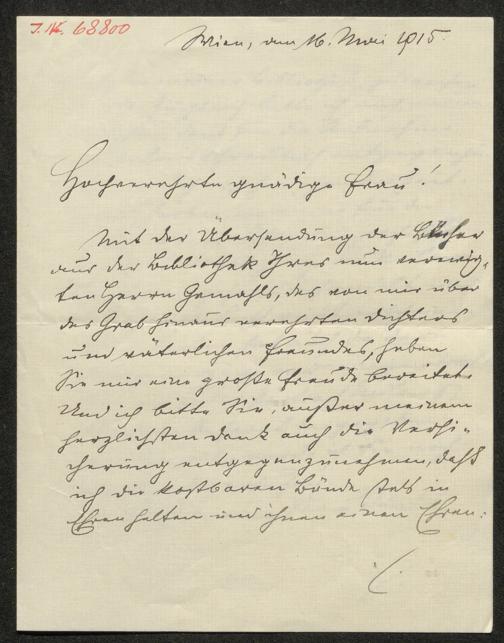 J.N. 68800
Wien, am 16. Mai 1915.
Hochverehrte gnädige Frau!
Mit der Übersendung der Bücher
aus der Bibliothek Ihres nun verewig-
ten Herrn Gemahls, des von mir über
das Grab hinaus verehrten Dichters
und väterlichen Freundes, haben
Sie mir eine große Freude bereitet.
Und ich bitte Sie, außer meinem
herzlichsten Dank auch die Versi-
cherung entgegenzunehmen, daß
ich die kostbaren Bände stets in
Ehren halten und ihnen einen Ehren-